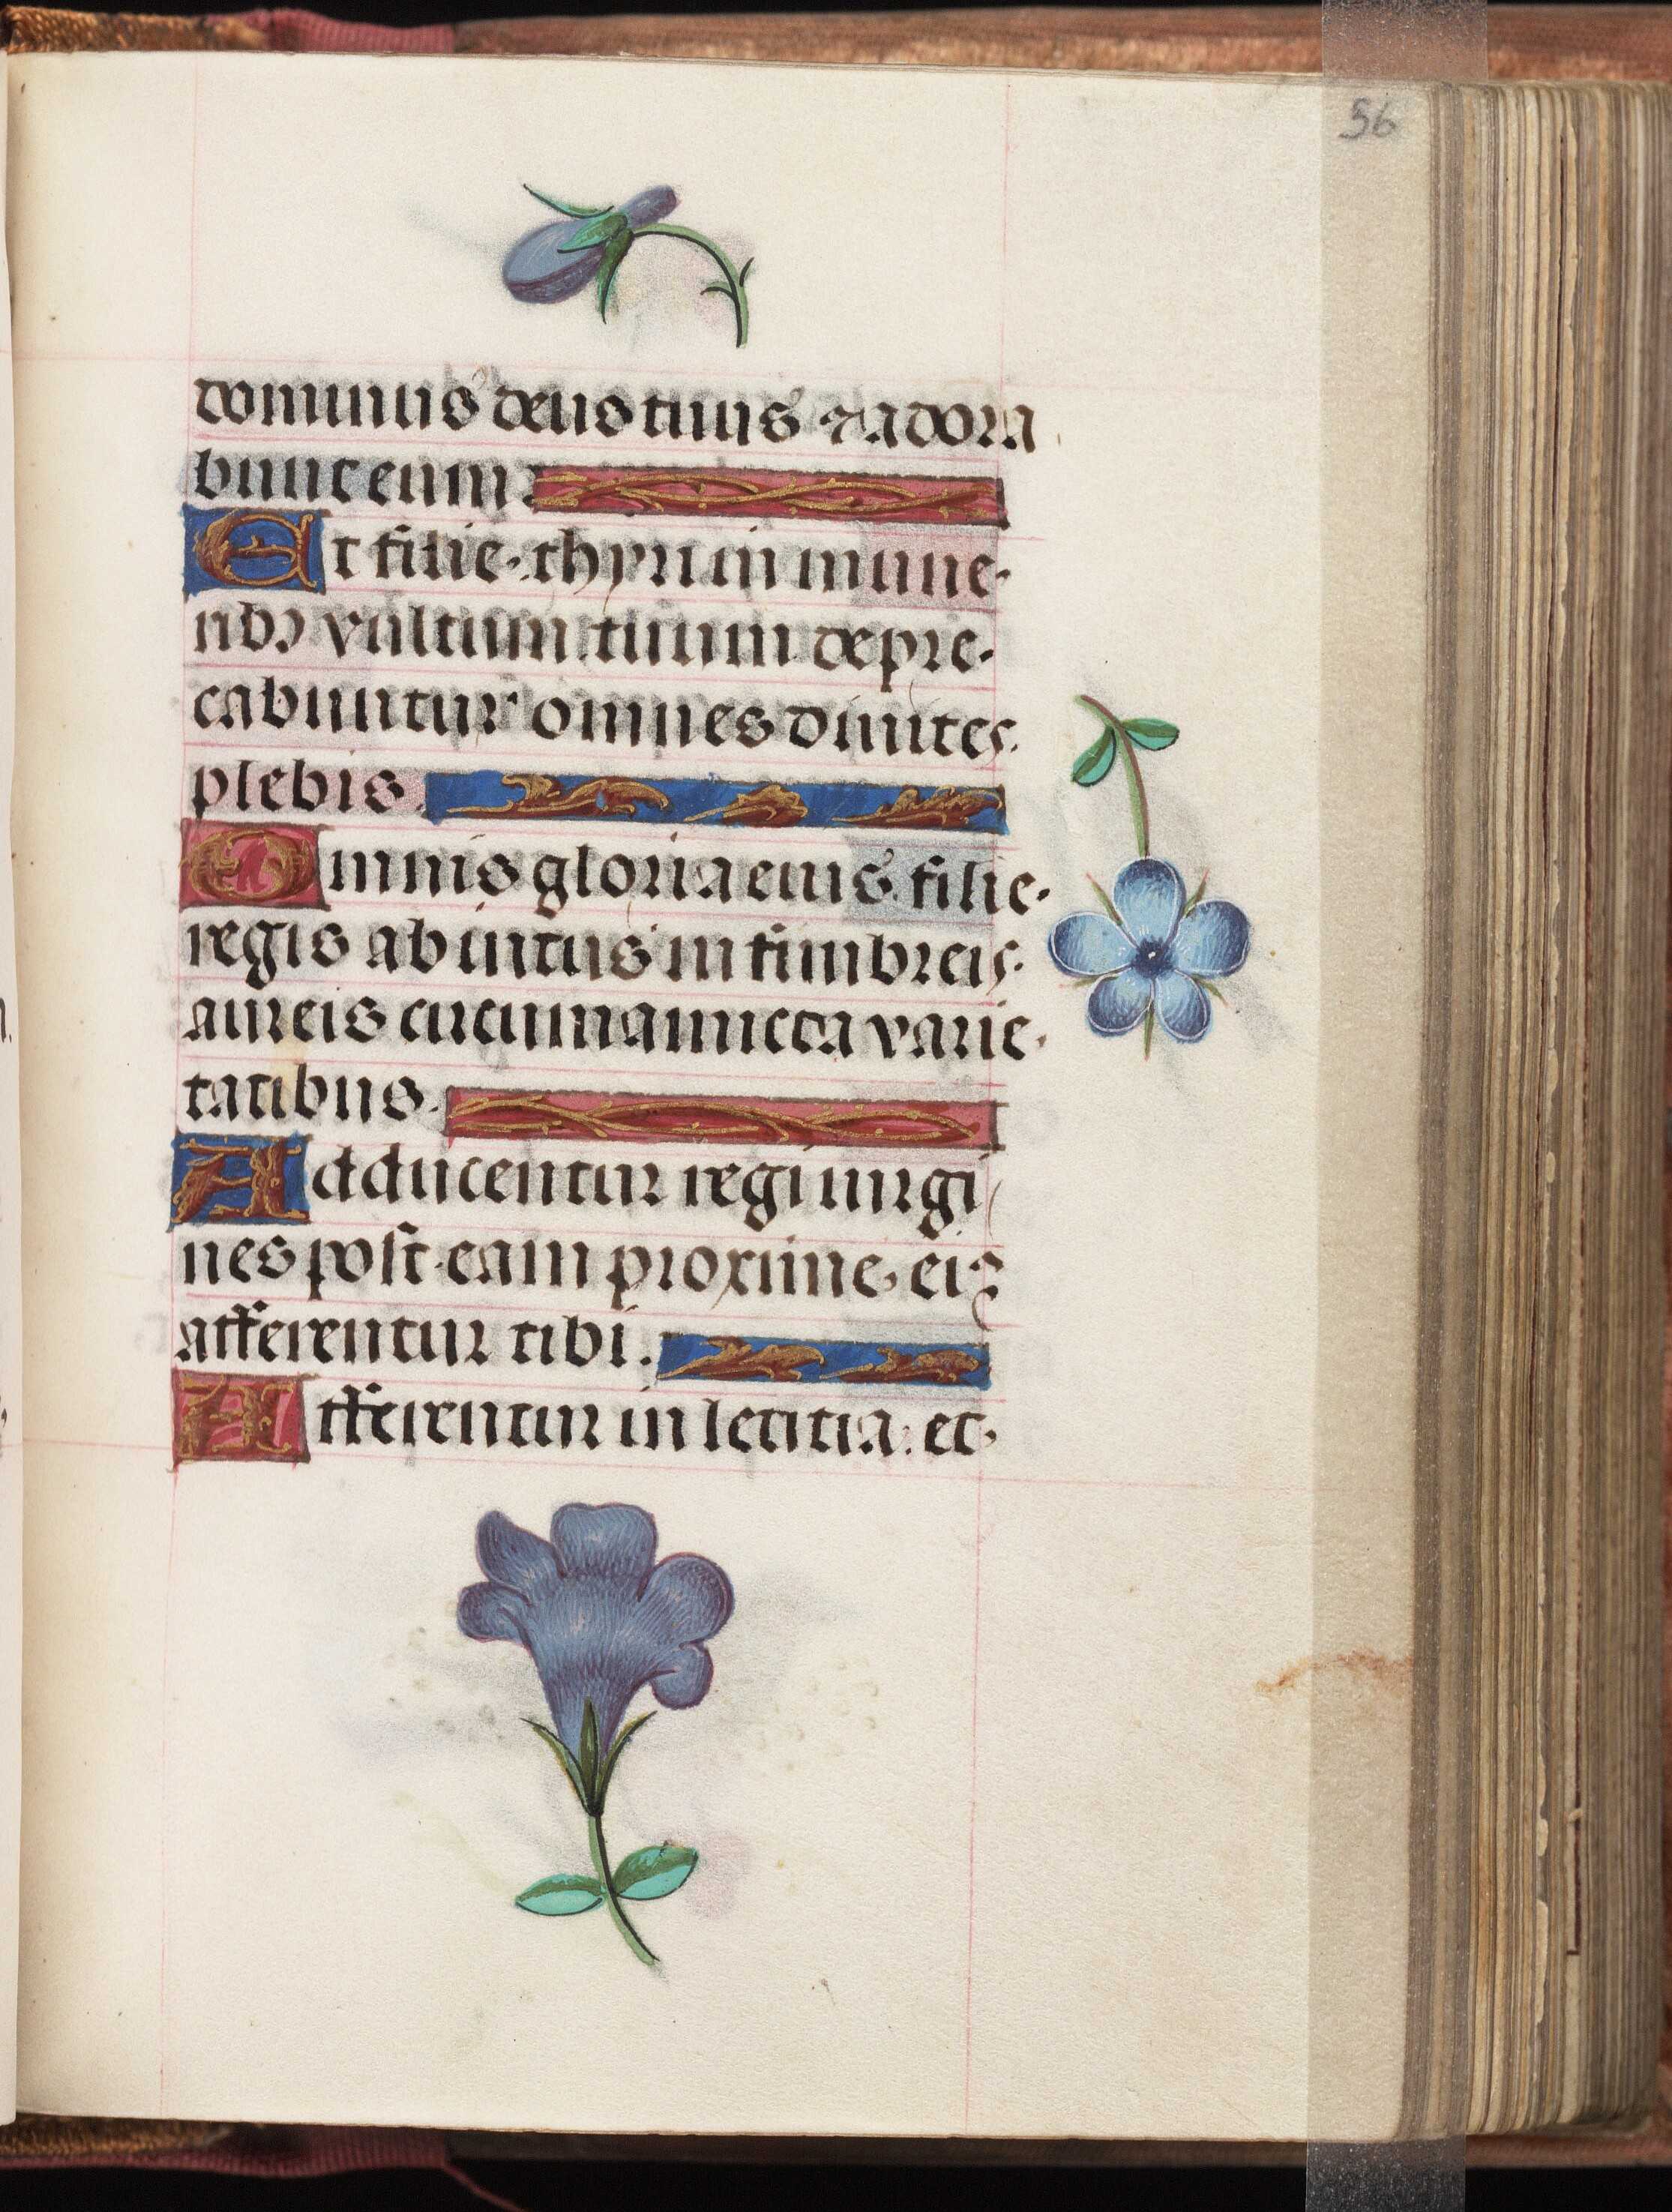 56
dominus deus tuus ⁊ adora
bunt eum
Et filie thyri in mune
ribꝫ vultum tuum depre
cabuntur omnes diuites
plebis.
Omnis gloria eius filie
regis ab intus in fimbreis
aureis circumamicta varie
tatibus.
Adducentur regi uirgi
nes post eam proxime eiꝰ
afferentur tibi.
Afferentur in letitia et